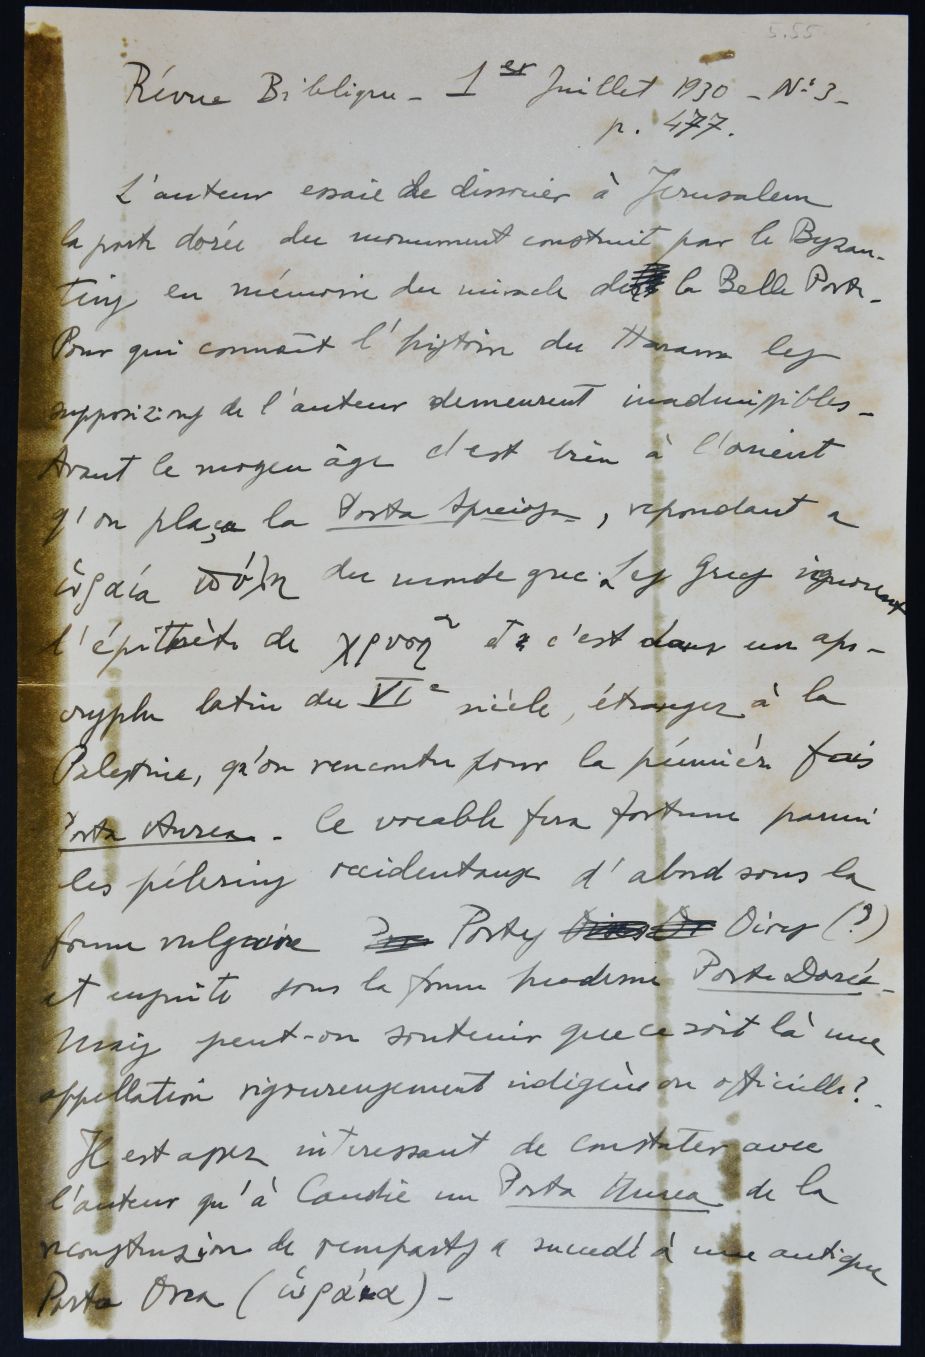 5.55
Révue Biblique - 1er Juillet 1930 - No 3 -
p. 477.
L'auteur essaie de dissocier à Jerusalem
la porte dorée du monument construit par le Byzan-
tins en mémoire du miracle de la Belle Porte -
Pour qui connaît l'histoire du Haram les
supposizions de l'auteur demeurent inadmissibles -
Avant le moyen âge c'est bien à l'orient
q'on plaça la Porta Speciosa, repondant a
ὡραία πύλη du monde grec. Les Grecs ignorent
l'épithète de χρυσῆ et c'est dans un apo-
cryphe latin du VIe siècle, étranger à la
Palestine, qu'on rencontre pour la première fois
Porta Aurea - Ce vocable fera fortune parmi
les pélerins occidentaux d'abord sous la
forme vulgaire Portes Oires (?)
et ensuite sous la forme moderne Porte Dorée -
Mais peut-on soutenir que ce soit là une
appellation rigoureusement indigène ou officielle? -
Il est assez interessant de constater avec
l'auteur qu'à Candie un Porta Aurea de la
recongstruzion de remparts a succedé à une antique
Porta Orea (ὡραία) -